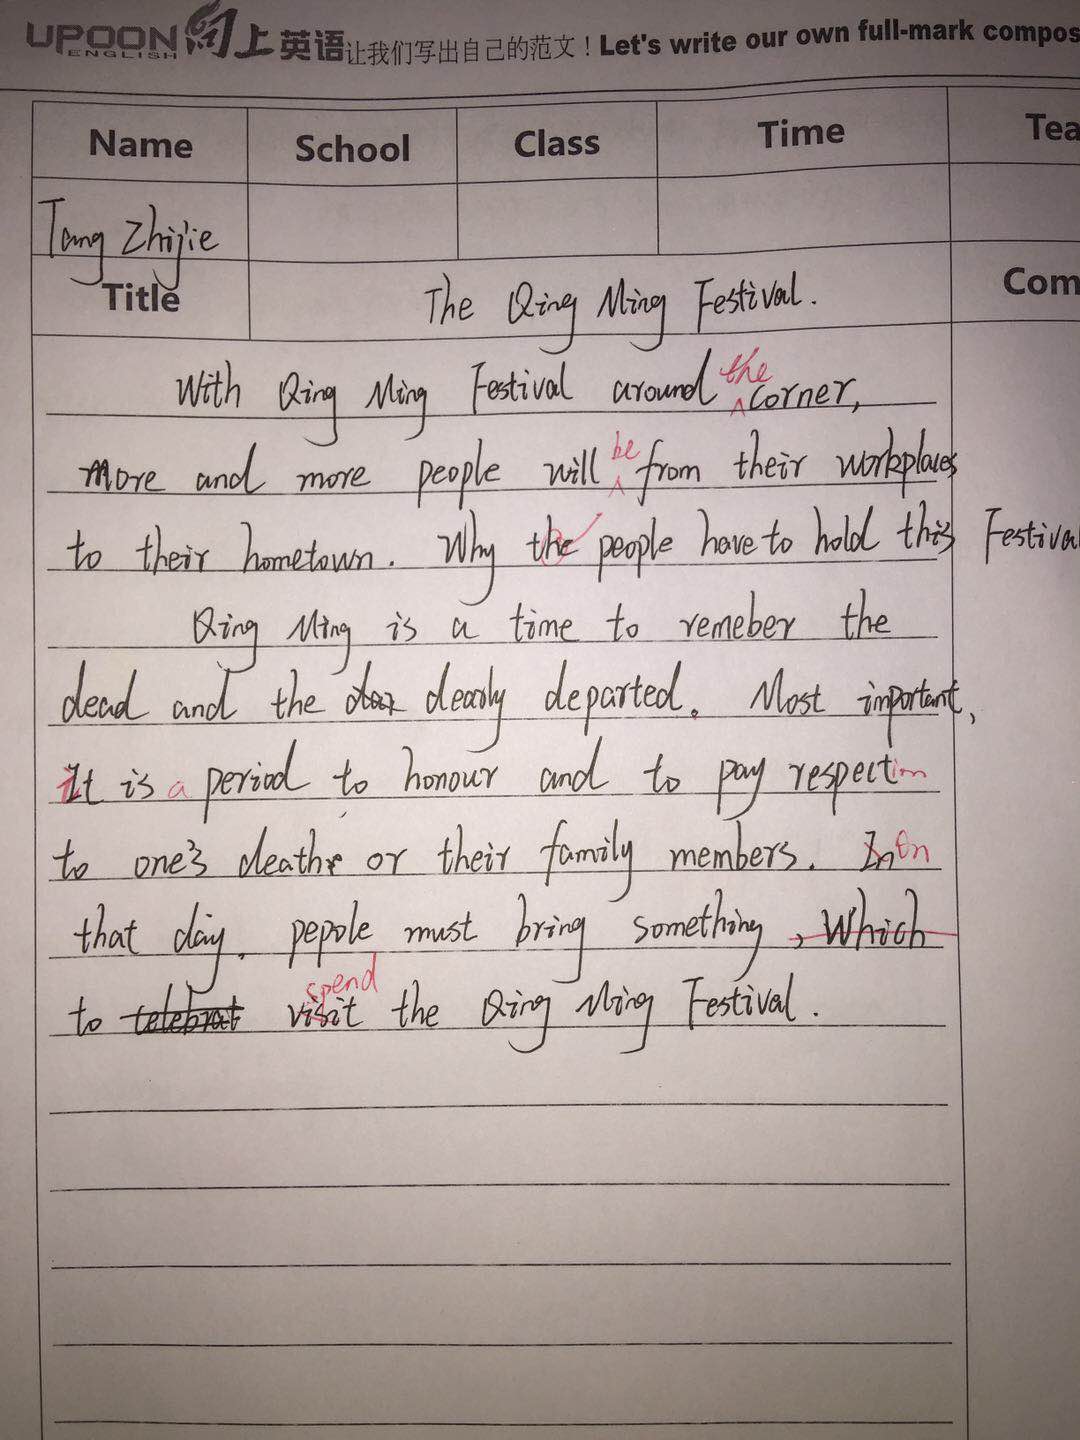 UPOON ENGLISH 向上英语 让我们写出自己的范文！Let's write our own full-mark compos
Name School Class Time Tea
Tang Zhijie
Title The Qing Ming Festival. Com
With Qing Ming Festival around the corner,
more and more people will be from their workplaces
to their hometown. Why the people have to hold this Festival
Qing Ming is a time to remeber the
dead and the dearly departed. Most important,
it is a period to honour and to pay respection
to one's death or their family members. In On
that day, pepole must bring something, which
to telebrat visit spend the Qing Ming Festival.